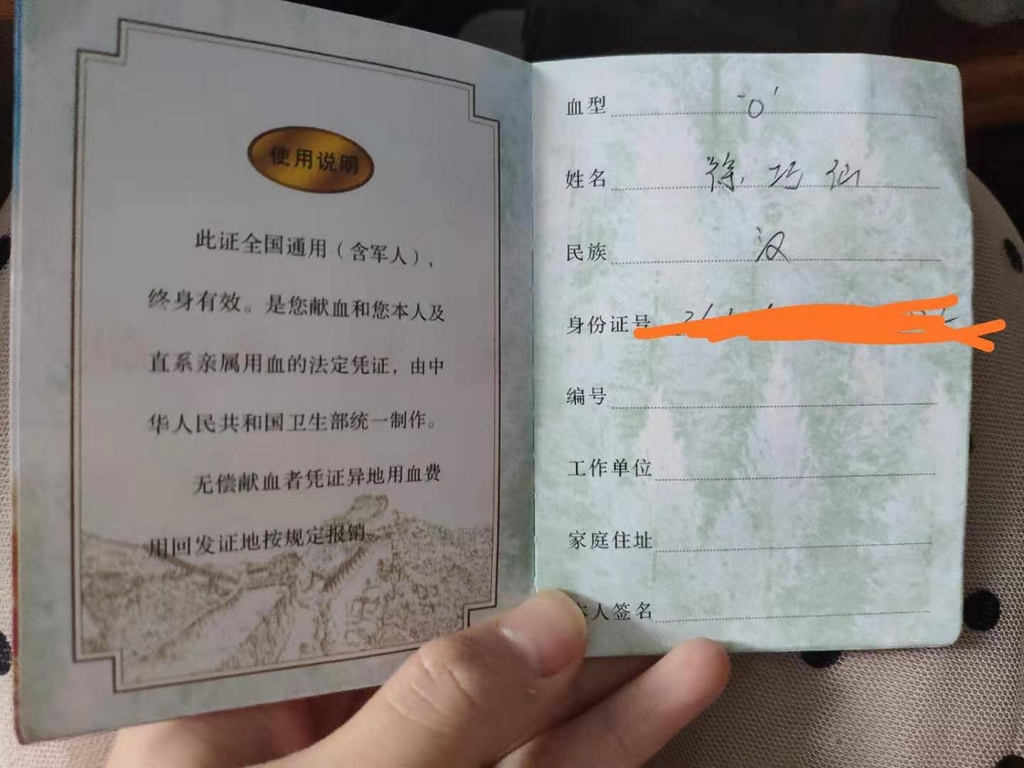 使用说明
此证全国通用（含军人），
终身有效。是您献血和您本人及
直系亲属用血的法定凭证，由中
华人民共和国卫生部统一制作。
无偿献血者凭证异地用血费
用回发证地按规定报销
血型 "O"
姓名 徐巧仙
民族 汉
身份证号
编号
工作单位
家庭住址
人签名